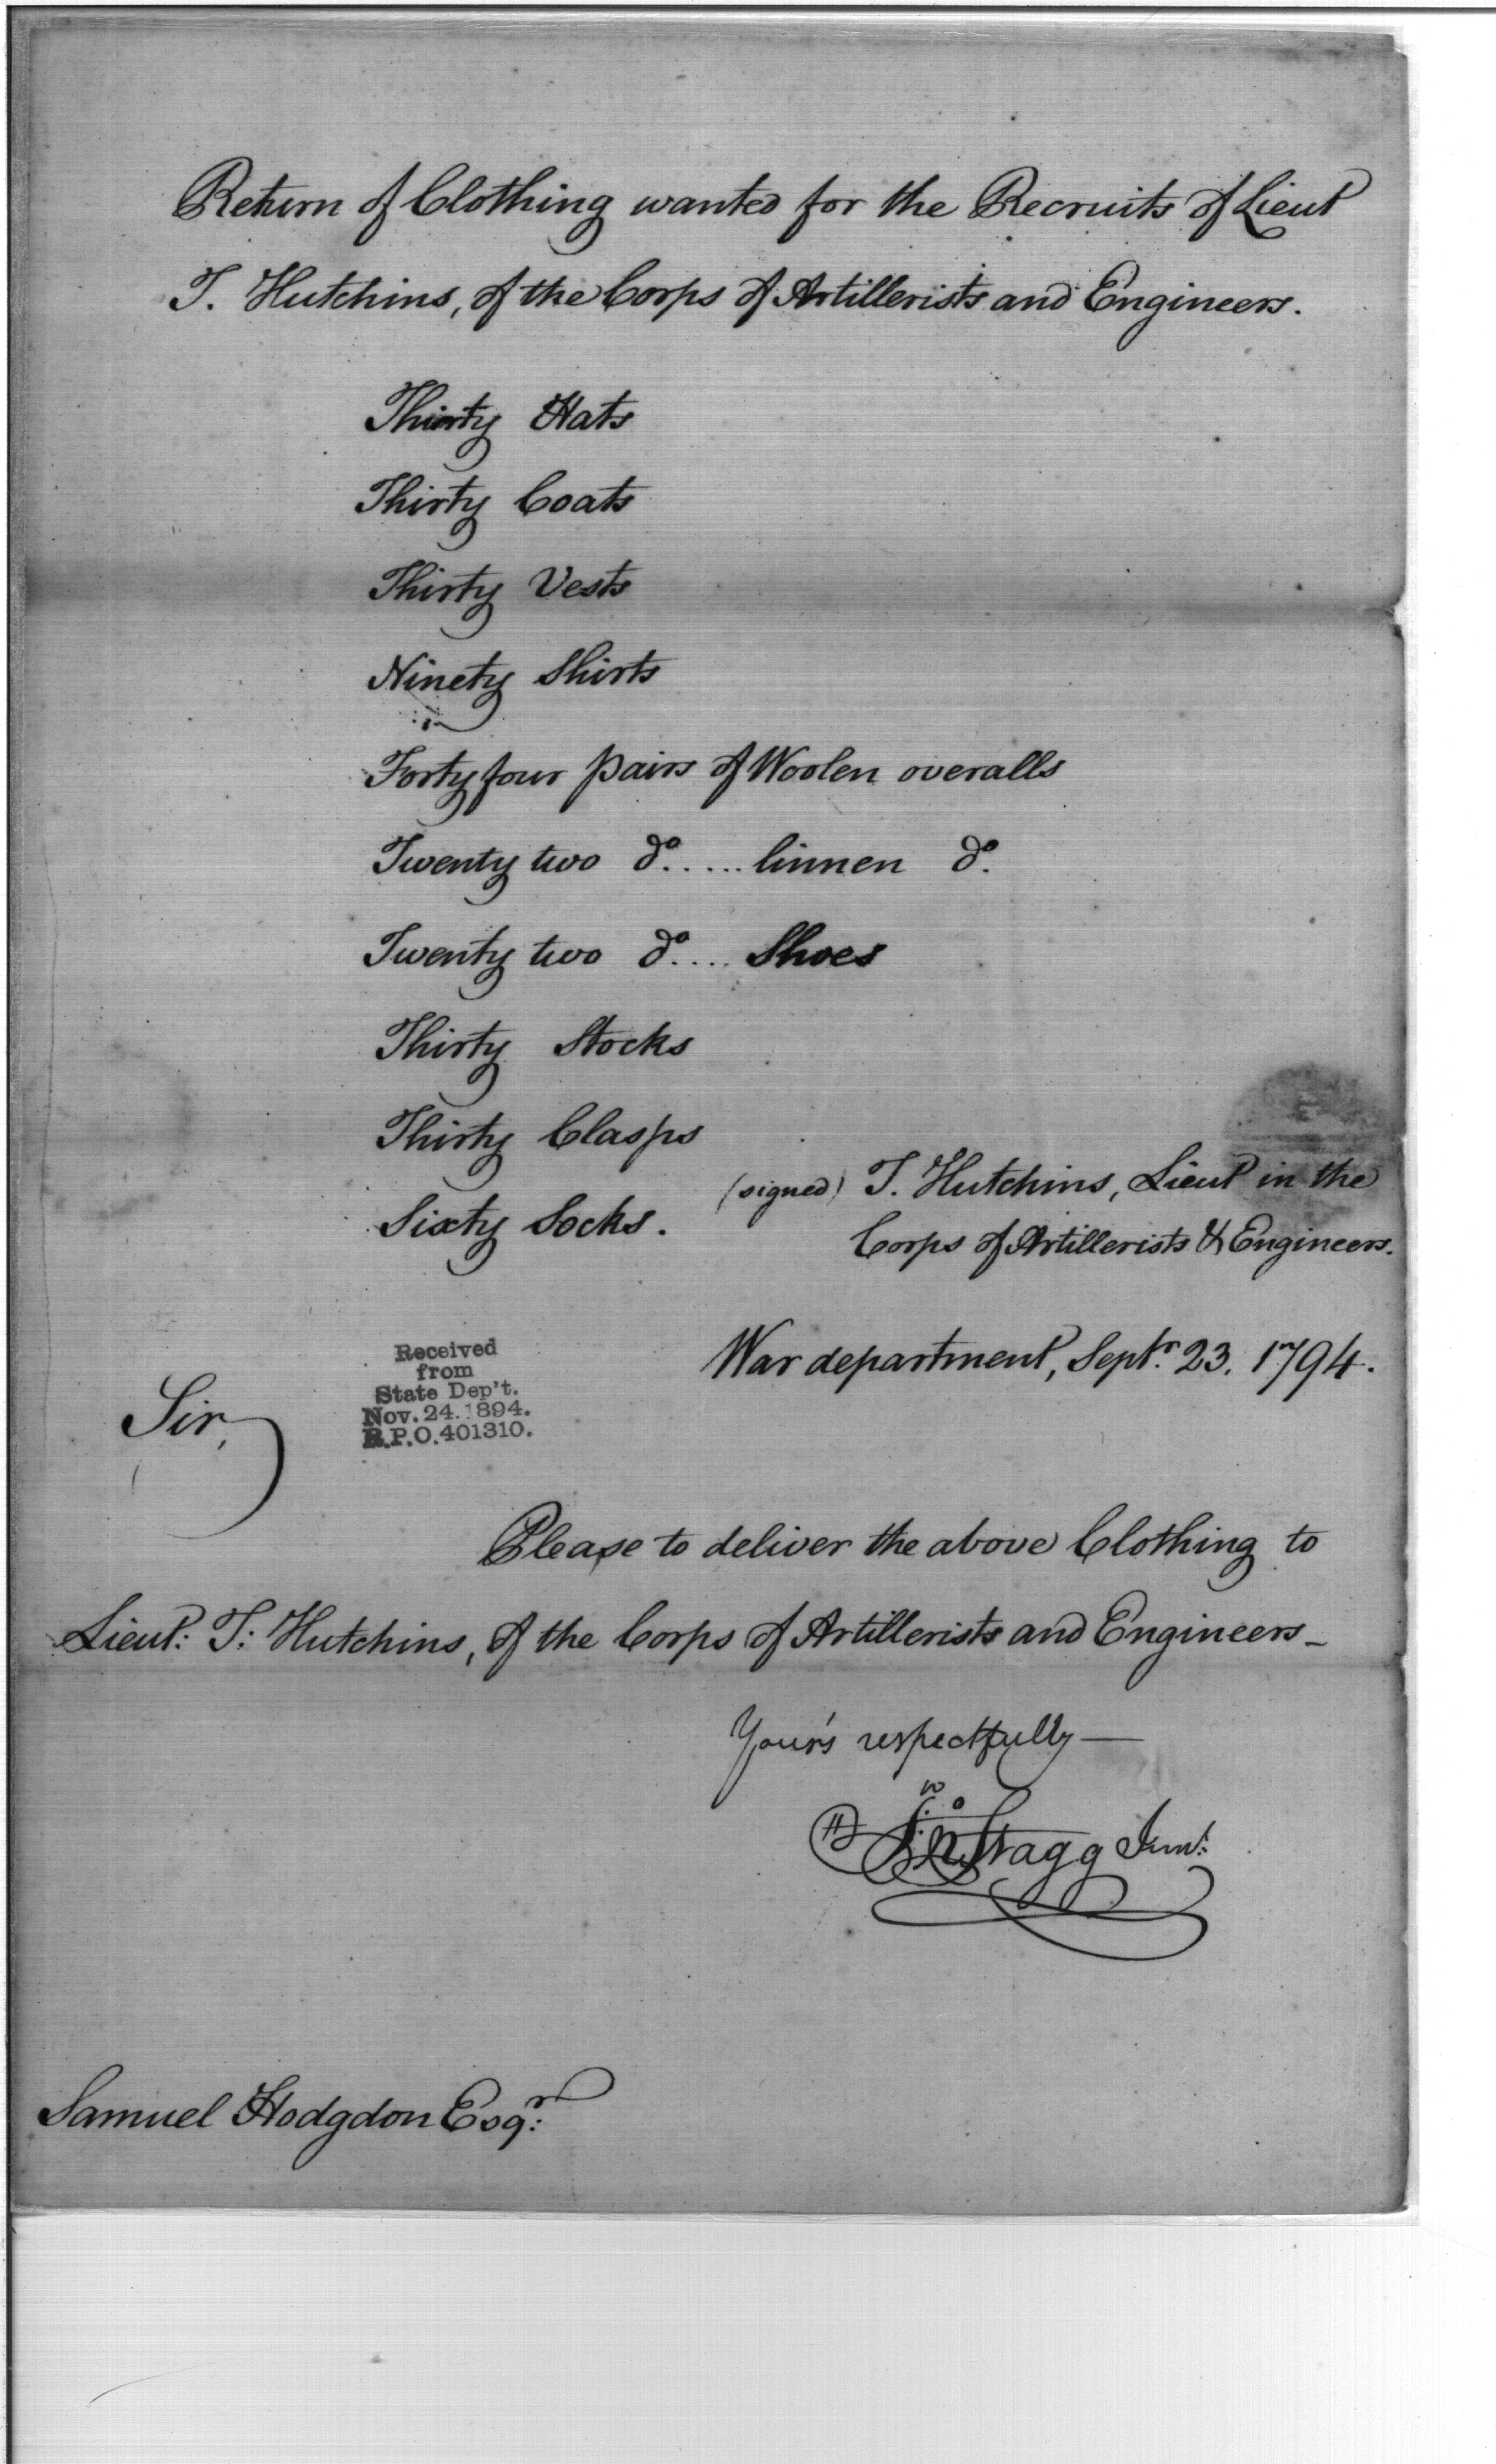 Return of Clothing wanted for the Recruits of Lieut
T. Hutchins, of the Corps of Artillerists and Engineers.
Thirty Hats
Thirty Coats
Thirty Vests
Ninety Shirts
Forty four pairs of Woolen overalls
Twenty two do..... linnen do.
Twenty two do.... Shoes
Thirty Stocks
Thirty Clasps
Sixty Socks.
(signed) T. Hutchins, Lieut in the
Corps of Artillerists & Engineers.
War department, Septr. 23. 1794.
Received
from
State Dep't.
Nov. 24. 1894.
R.P.O. 401310.
Sir,
Please to deliver the above Clothing to
Lieut: T: Hutchins, of the Corps of Artillerists and Engineers_
Your's respectfully—
Jno Stagg Junr:
Samuel Hodgdon Esqr: